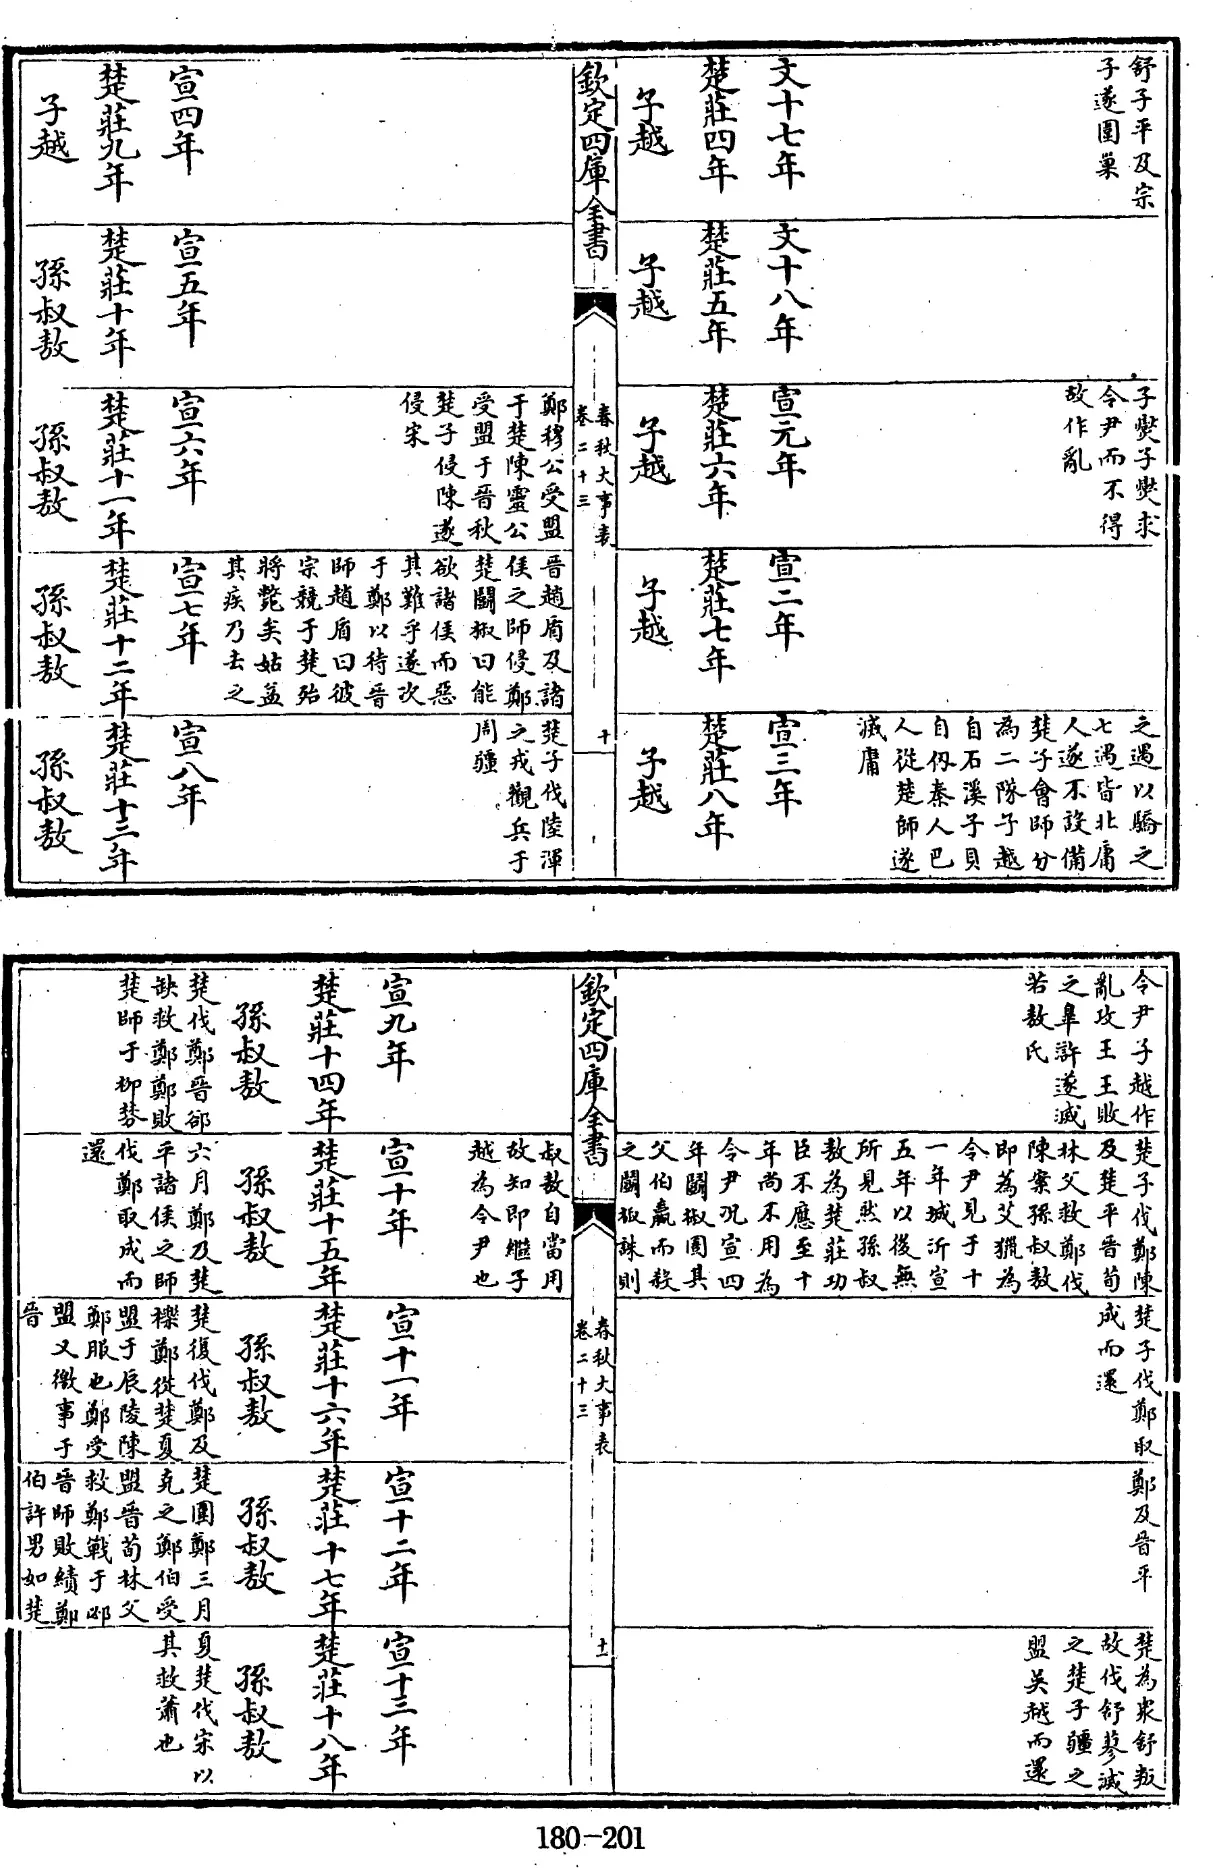 舒子平及宗
子遂圍巢
文十七年
楚莊四年
子越
文十八年
楚莊五年
子越
子燮子燮求
令尹而不得
故作亂
宣元年
楚莊六年
子越
宣二年
楚莊七年
子越
之遇以驕之
七遇皆北庸
人遂不設備
楚子會師分
為二隊子越
自石溪子貝
自仭秦人巴
人從楚師遂
滅庸
宣三年
楚莊八年
子越
欽定四庫全書
春秋大事表
卷二十三
十
宣四年
楚莊九年
子越
宣五年
楚莊十年
孫叔敖
鄭穆公受盟
于楚陳靈公
受盟于晉秋
楚子侵陳遂
侵宋
宣六年
楚莊十一年
孫叔敖
晉趙盾及諸
侯之師侵鄭
楚鬭椒曰能
欲諸侯而惡
其難乎遂次
于鄭以待晉
師趙盾曰彼
宗競于楚殆
將斃矣姑益
其疾乃去之
宣七年
楚莊十二年
孫叔敖
楚子伐陸渾
之戎觀兵于
周疆
宣八年
楚莊十三年
孫叔敖
令尹子越作
亂攻王王敗
之臯滸遂滅
若敖氏
楚子伐鄭陳
及楚平晉荀
林父救鄭伐
陳案孫叔敖
即為艾獵為
令尹見于十
一年城沂宣
五年以後無
所見然孫叔
敖為楚莊功
臣不應至十
年尚不用為
令尹况宣四
年鬭椒圄其
父伯嬴而殺
之鬭椒誅則
楚子伐鄭取
成而還
鄭及晉平
楚為衆舒叛
故伐舒蓼滅
之楚子疆之
盟吳越而還
欽定四庫全書
春秋大事表
卷二十三
十一
宣九年
楚莊十四年
孫叔敖
楚伐鄭晉郤
缺救鄭鄭敗
楚師于柳棼
叔敖自當用
故知即繼子
越為令尹也
宣十年
楚莊十五年
孫叔敖
六月鄭及楚
平諸侯之師
伐鄭取成而
還
宣十一年
楚莊十六年
孫叔敖
楚復伐鄭及
櫟鄭從楚夏
盟于辰陵陳
鄭服也鄭受
盟又徼事于
晉
宣十二年
楚莊十七年
孫叔敖
楚圍鄭三月
克之鄭伯受
盟晉荀林父
救鄭戰于邲
晉師敗績鄭
伯許男如楚
宣十三年
楚莊十八年
孫叔敖
夏楚伐宋以
其救蕭也
180-201